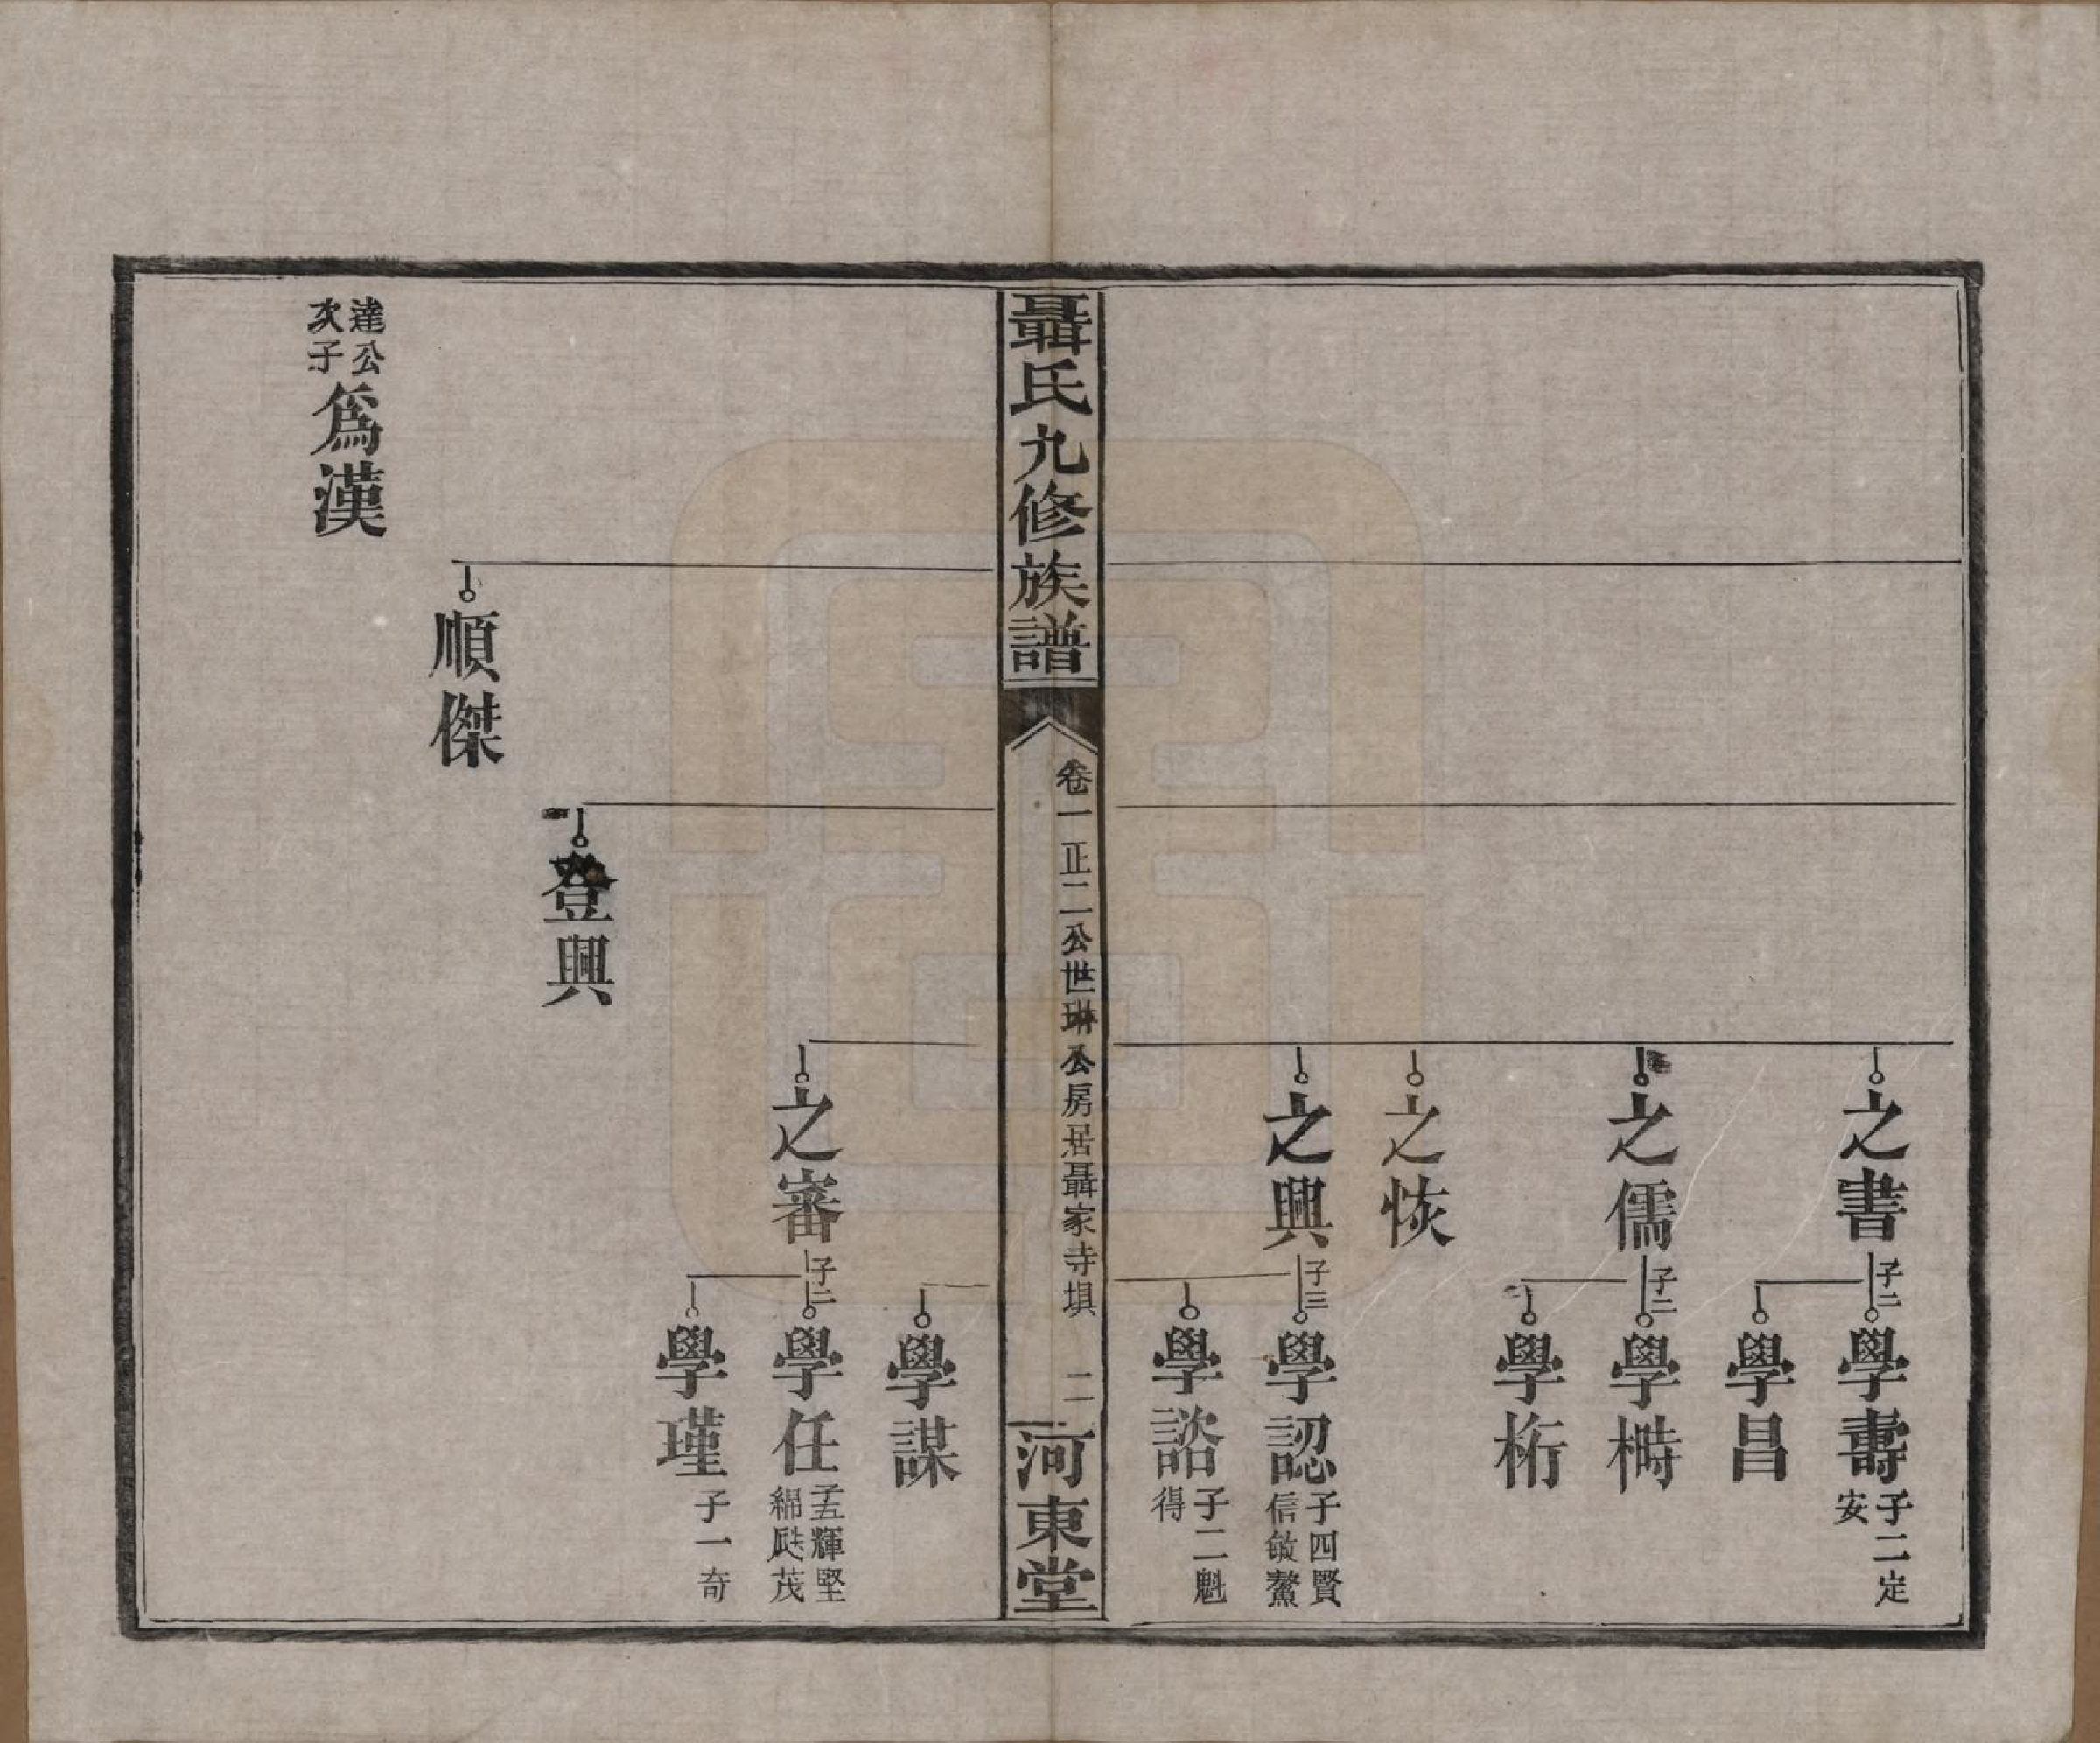 之書
子二
學壽
子二定
安
學昌
之儒
子二
學㭙
學桁
之恢
之興
子三
學認
子四賢
信敏鰲
學諮
子二魁
得
聶氏九修族譜
卷一正二公世琳公房居聶家寺塤
二
河東堂
學謀
之審
子二
學任
子五輝堅
綿茂
學瑾
子一奇
登興
順傑
達公
次子
爲漢